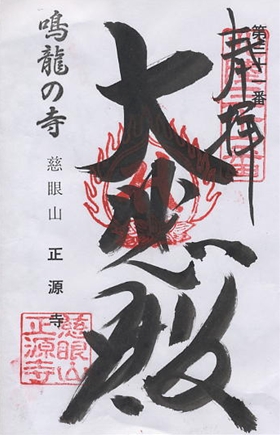 奉拝
第三十一番
大悲殿
鳴龍の寺
慈眼山 正源寺
慈眼山
正源寺